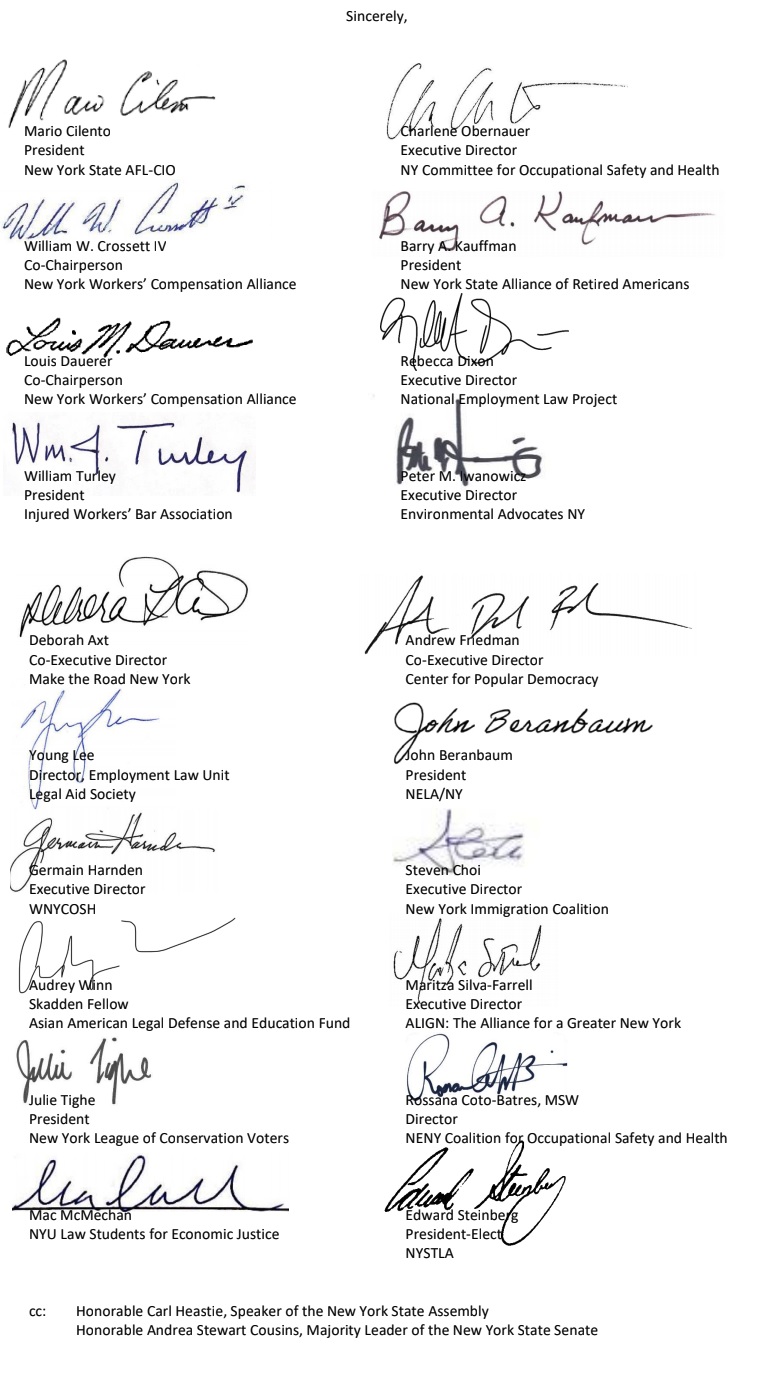 Sincerely,
Mario Cilento
Mario Cilento
President
New York State AFL-CIO
Charlene Obernauer
Executive Director
NY Committee for Occupational Safety and Health
William W. Crossett IV
William W. Crossett IV
Co-Chairperson
New York Workers’ Compensation Alliance
Barry A. Kaufmann
Barry A. Kauffman
President
New York State Alliance of Retired Americans
Louis M. Dauerer
Louis Dauerer
Co-Chairperson
New York Workers’ Compensation Alliance
Rebecca Dixon
Executive Director
National Employment Law Project
Wm. J. Turley
William Turley
President
Injured Workers’ Bar Association
Peter M. Iwanowicz
Executive Director
Environmental Advocates NY
Deborah Axt
Co-Executive Director
Make the Road New York
Andrew Friedman
Co-Executive Director
Center for Popular Democracy
Young Lee
Director, Employment Law Unit
Legal Aid Society
John Beranbaum
John Beranbaum
President
NELA/NY
Germain Harnden
Germain Harnden
Executive Director
WNYCOSH
Steven Choi
Executive Director
New York Immigration Coalition
Audrey Winn
Skadden Fellow
Asian American Legal Defense and Education Fund
Maritza Silva-Farrell
Executive Director
ALIGN: The Alliance for a Greater New York
Julie Tighe
Julie Tighe
President
New York League of Conservation Voters
Rossana Coto-Batres, MSW
Director
NENY Coalition for Occupational Safety and Health
Mac McMechan
NYU Law Students for Economic Justice
Edward Steinberg
Edward Steinberg
President-Elect
NYSTLA
cc: Honorable Carl Heastie, Speaker of the New York State Assembly
Honorable Andrea Stewart Cousins, Majority Leader of the New York State Senate